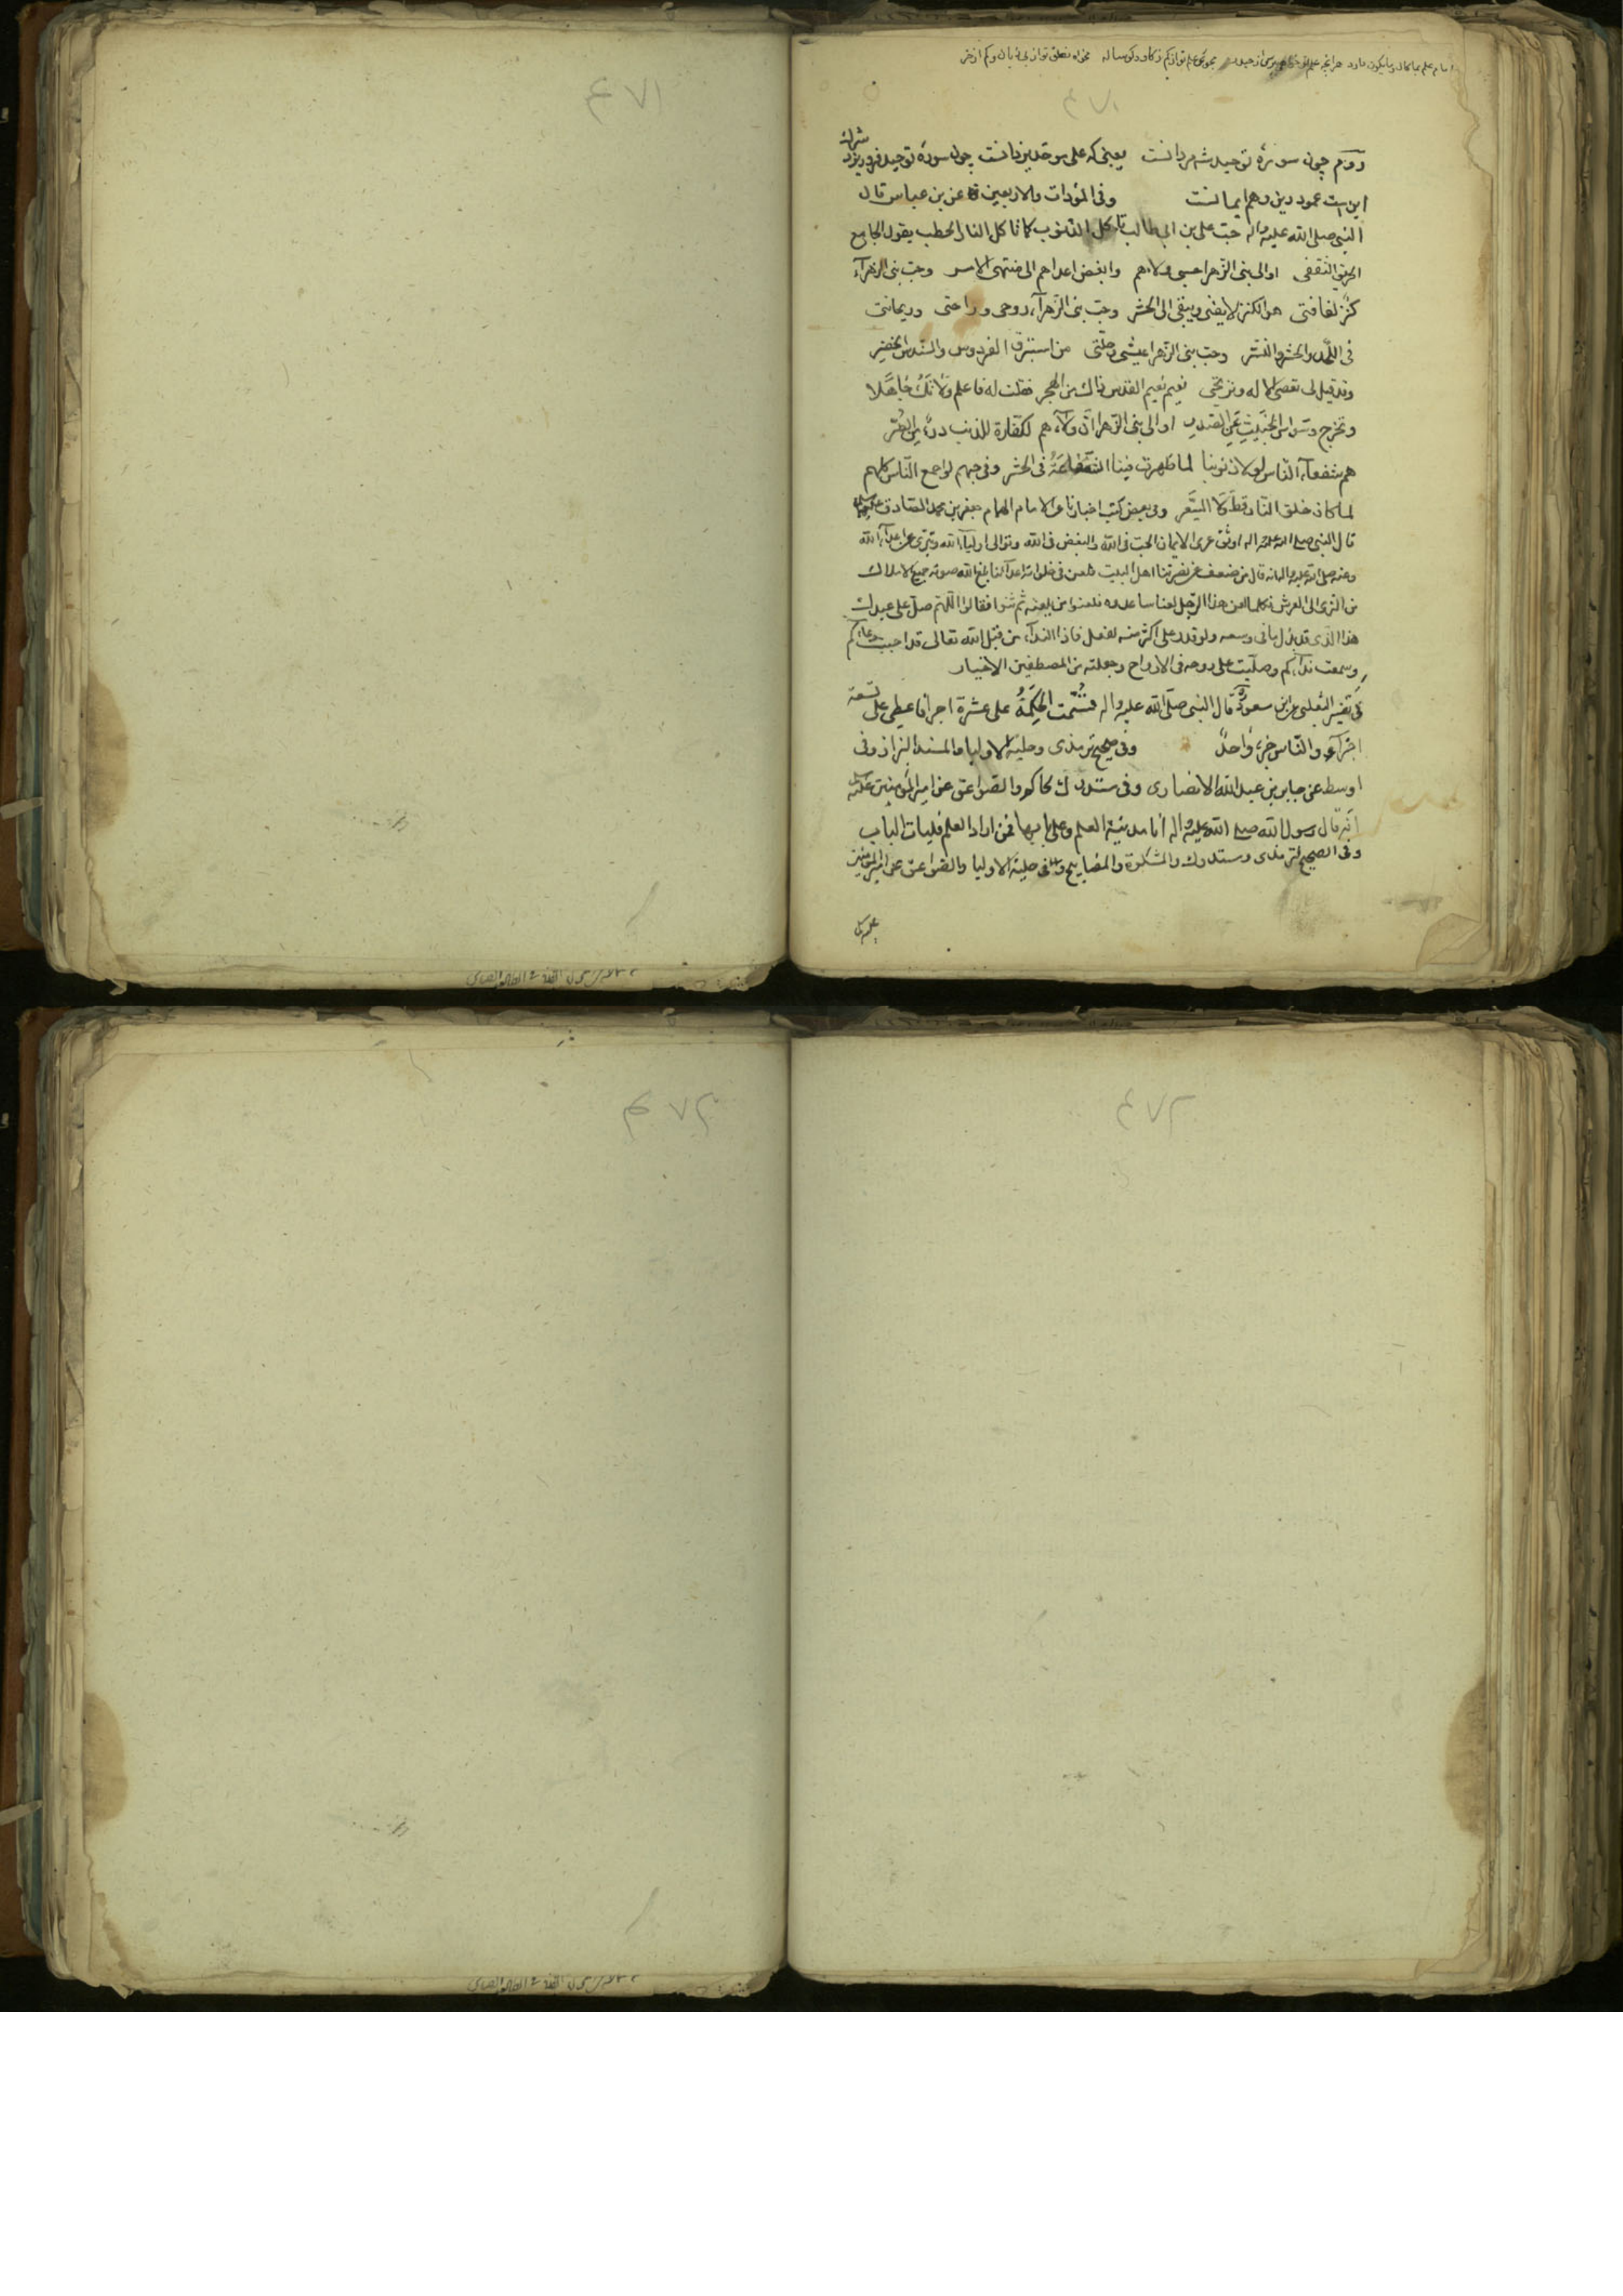 ۴۷۱
۴۷۱
دوم چون سوره توحید شمردانست یعنی که علی موحد یزدانست چون سوره توحید فرو ریزد شرك
این است عمود دین وهم ایمانست وفی المودات والاربعین عن بن عباس قال
النبی صلی الله علیه واله حبّ علی بن ابی طالب تاکل الذنوب کما تاکل النار الحطب یقول الجامع
الثقفی اوالی بنی الزهرا حسبی ولاءهم وابغض اعداهم الی منتهی الامر وحبّ بنی الزهرآء
کنز لفاقتی هو الکنز لایفنی ویبقی الی الحشر وحبّ بنی الزهرآء روحی وراحتی وریحانتی
فی اللحد والحشر والنشر وحبّ بنی الزهرا عیشی وحلّتی من استبرق الفردوس والسندس الخضر
وقد قیل لی تعصی الاله وترتجی نعیم نعیم القدس ذاك من الهجر فقلت له فاعلم ولا تكُ جاهلا
وتخرج وسواس الخبیث عن الصدر اوالی بنی الزهرا انّ ولآءهم لکفّارة للذنب
هم شفعآء الناس لولا ذنوبنا لما ظهرت فینا الشفاعة فی الحشر وفی حبهم لو اجمع الناس کلهم
لما کان خلق النار قطّ ولا السّعر وفی بعض کتب اخبارنا عن الامام الهمام جعفر بن محمد الصادق علیه السلام
قال النبی صلی الله علیه واله اوثق عری الایمان الحبّ فی الله والبغض فی الله وتوالی اولیآء الله وتبرّی عن اعدآء الله
وعنه صلی الله علیه واله انه قال من ضعف عن نصرتنا اهل البیت فلعن فی خلواته اعدآئنا بلغ الله صوته جمیع الاملاك
من الثری الی العرش فکلما لعن هذا الرجل لعنا ساعدوه فلعنوا من یلعنه ثم ثنوا فقالوا اللّهم صلّ علی عبدك
هذا الذی قد بذل مافی وسعه ولو قدر علی اکثر منه لفعل فاذا الندآء من قبل الله تعالی قد احببت دعائکم
وسمعت ندآءکم وصلّیت علی روحه فی الارواح وجعلته من المصطفین الاخیار
فی تفسیر الثعلبی عن ابن مسعود قال النبی صلّی الله علیه واله قسّمت الحکمة علی عشرة اجزا فاعطی علی تسعة
اجزآء والناس جزء واحدً وفی صحیح ترمذی وحلیة الاولیا والمسند البزاز وفی
اوسط عن جابر بن عبدالله الانصاری وفی مستدرك حاکم والصواعق عن امیر المؤمنین علیه السلام
انه قال رسول الله صلی الله علیه واله انا مدینة العلم وعلی بابها فمن اراد العلم فلیات الباب
وفی الصحیح لترمذی ومستدرك والمشکوة والمصابیح وفی حلیة الاولیا والصواعق عن امیر المؤمنین
علیه السلام
۴۷۲
۴۷۲